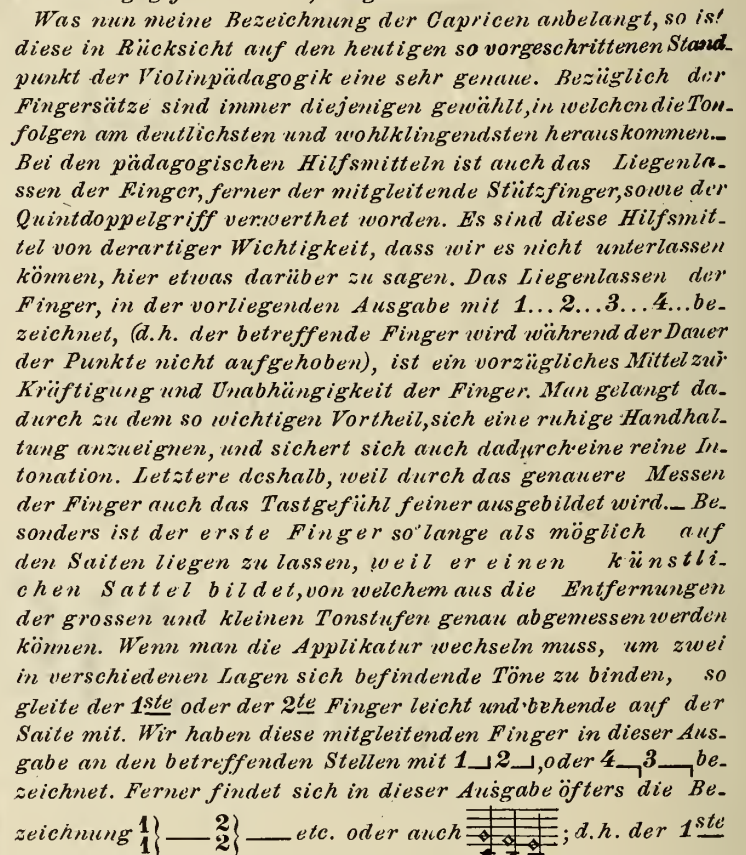 Was nun meine Bezeichnung der Capricen anbelangt, so ist
diese in Rücksicht auf den heutigen so vorgeschrittenen Stand-
punkt der Violinpädagogik eine sehr genaue. Bezüglich der
Fingersätze sind immer diejenigen gewählt, in welchen die Ton-
folgen am deutlichsten und wohlklingendsten herauskommen.—
Bei den pädagogischen Hilfsmitteln ist auch das Liegenla-
ssen der Finger, ferner der mitgleitende Stützfinger, sowie der
Quintdoppelgriff verwerthet worden. Es sind diese Hilfsmit-
tel von derartiger Wichtigkeit, dass wir es nicht unterlassen
können, hier etwas darüber zu sagen. Das Liegenlassen der
Finger, in der vorliegenden Ausgabe mit 1...2...3...4...be-
zeichnet, (d.h. der betreffende Finger wird während der Dauer
der Punkte nicht aufgehoben), ist ein vorzügliches Mittel zur
Kräftigung und Unabhängigkeit der Finger. Man gelangt da-
durch zu dem so wichtigen Vortheil, sich eine ruhige Handhal-
tung anzueignen, und sichert sich auch dadurch eine reine In-
tonation. Letztere deshalb, weil durch das genauere Messen
der Finger auch das Tastgefühl feiner ausgebildet wird.— Be-
sonders ist der erste Finger so lange als möglich auf
den Saiten liegen zu lassen, weil er einen künstli-
chen Sattel bildet, von welchem aus die Entfernungen
der grossen und kleinen Tonstufen genau abgemessen werden
können. Wenn man die Applikatur wechseln muss, um zwei
in verschiedenen Lagen sich befindende Töne zu binden, so
gleite der 1ste oder der 2te Finger leicht und behende auf der
Saite mit. Wir haben diese mitgleitenden Finger in dieser Aus-
gabe an den betreffenden Stellen mit 1—2—, oder 4—3—be-
zeichnet. Ferner findet sich in dieser Ausgabe öfters die Be-
zeichnung 1 1}— 2 2}— etc. oder auch ; d.h. der 1ste